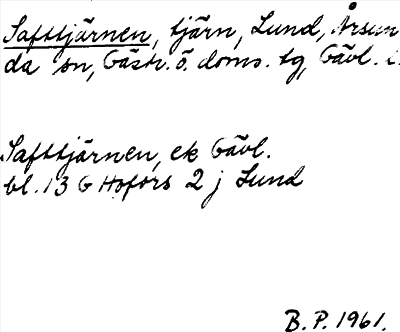 Safttjärnen, tjärn, Lund, Årsun
da sn, Gästr. ö. doms. tg, Gävl. l.
Safttjärnen, ek Gävl.
bl. 13 G Hofors 2 j Lund
B. P. 1961.